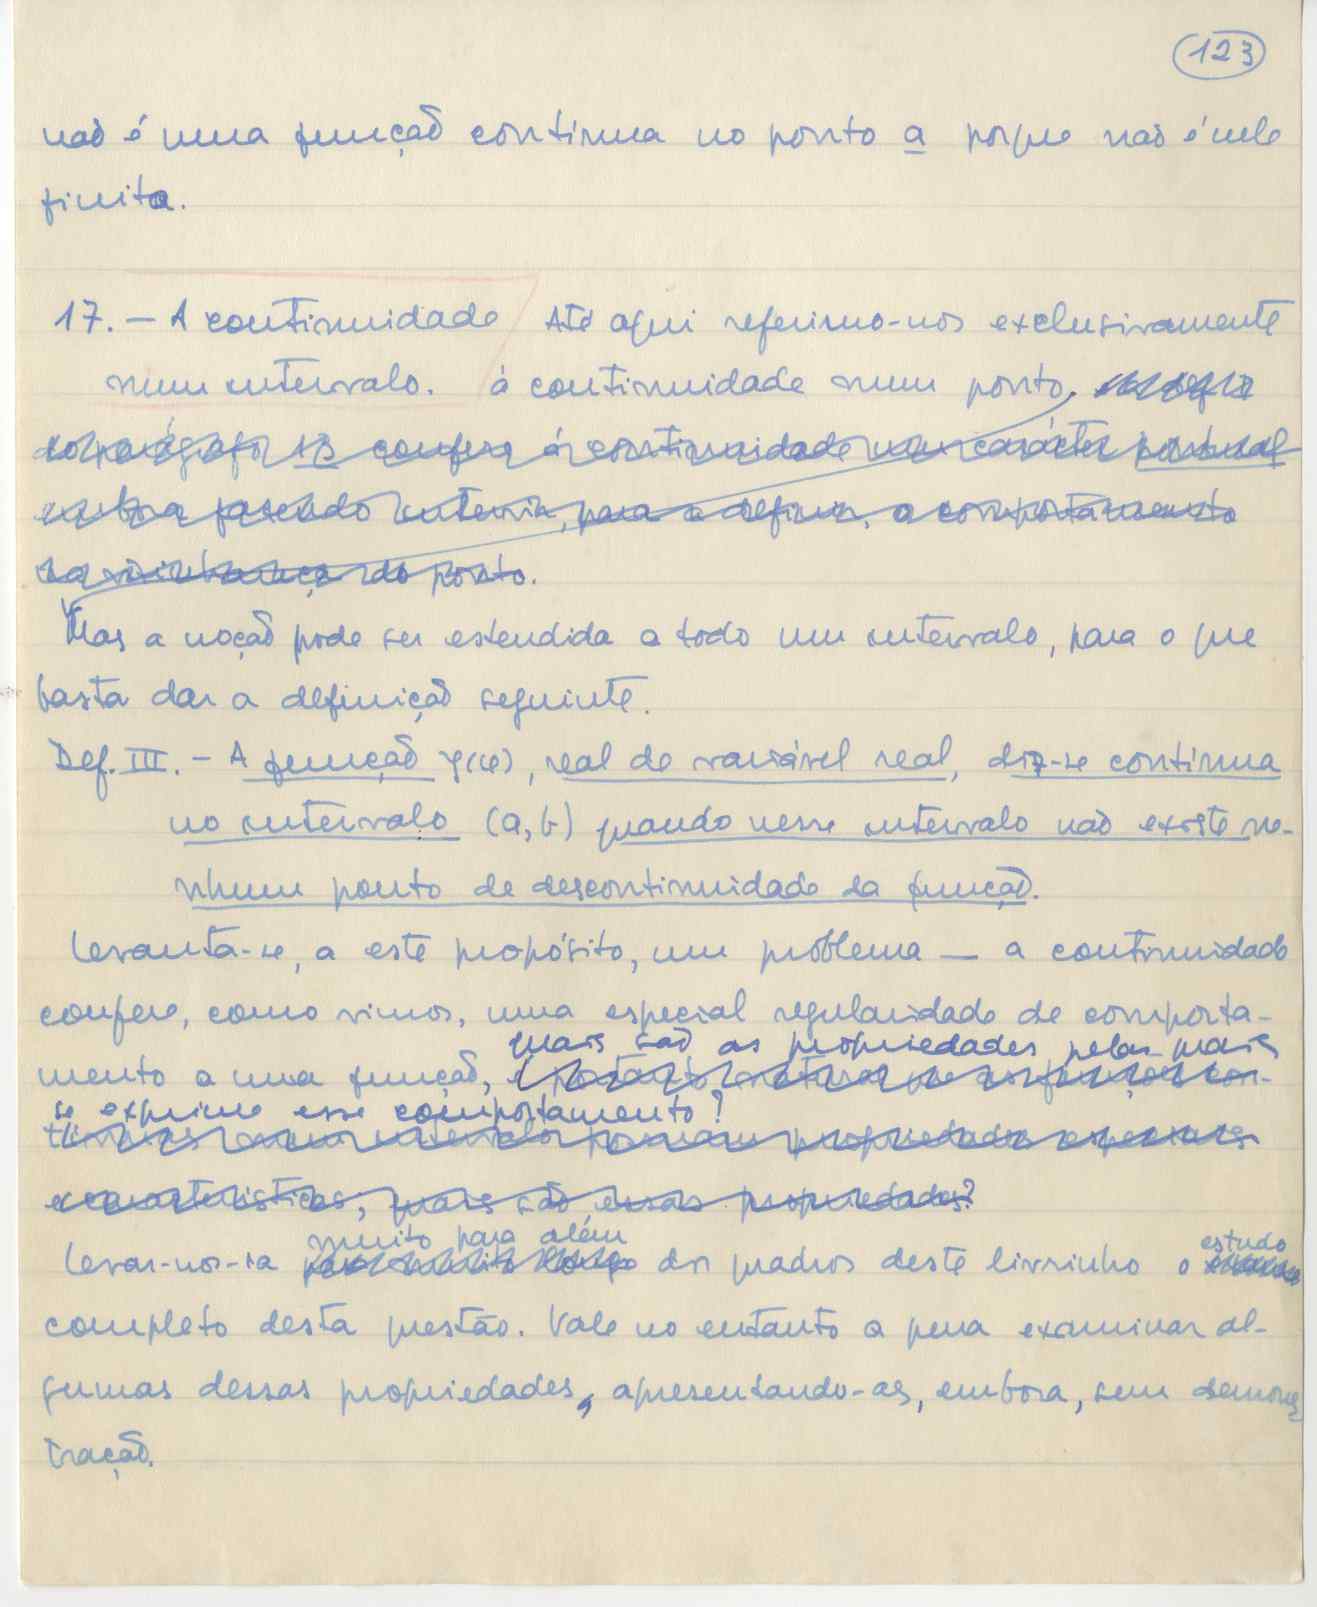 123
não é uma função contínua no ponto a porque não é nele
finita.
17. — A continuidade Até aqui referimo-nos exclusivamente
num intervalo. à continuidade num ponto.
do parágrafo 13 confere à continuidade um carácter pontual
embora fazendo intervir, para a definir, o comportamento
na vizinhança do ponto.
Mas a noção pode ser estendida a todo um intervalo, para o que
basta dar a definição seguinte.
Def. III. — A função y(x), real de variável real, diz-se contínua
no intervalo (a, b) quando nesse intervalo não existe ne-
nhum ponto de descontinuidade da função.
Levanta-se, a este propósito, um problema — a continuidade
confere, como vimos, uma especial regularidade de comporta-
quais são as propriedades pelas quais
mento a uma função, é portanto natural que as funções con-
se exprime esse comportamento?
tínuas num intervalo possuam propriedades especiais
e características; quais são essas propriedades?
muito para além estudo
Levar-nos-ia dos quadros deste livrinho o
completo desta questão. Vale no entanto a pena examinar al-
gumas dessas propriedades, apresentando-as, embora, sem demons
tração.